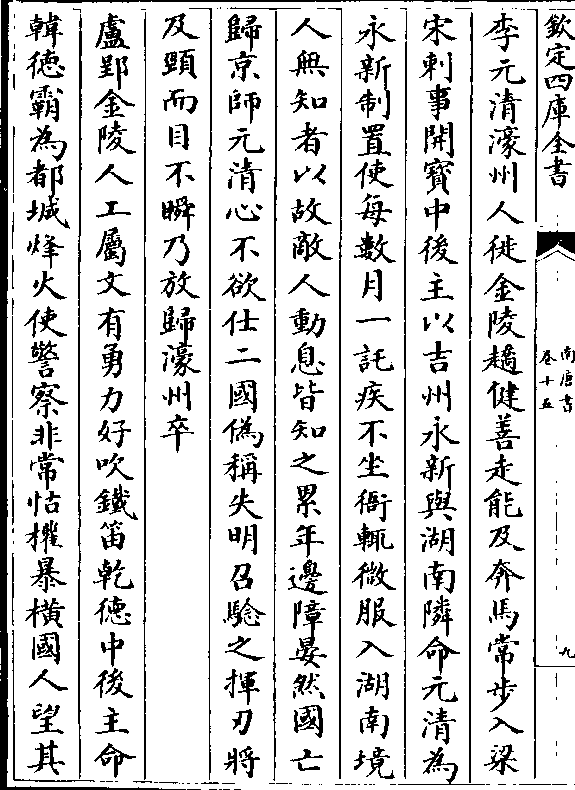 欽定四庫全書
南唐書
卷十五
九
李元清濠州人徙金陵趫健善走能及奔馬常步入梁
宋刺事開寶中後主以吉州永新與湖南隣命元清為
永新制置使每數月一託疾不坐衙輒微服入湖南境
人無知者以故敵人動息皆知之累年邊障晏然國亡
歸京師元清心不欲仕二國偽稱失明召驗之揮刃將
及頸而目不瞬乃放歸濠州卒
盧郢金陵人工屬文有勇力好吹鐵笛乾徳中後主命
韓徳霸為都城烽火使警察非常怙權暴橫國人望其